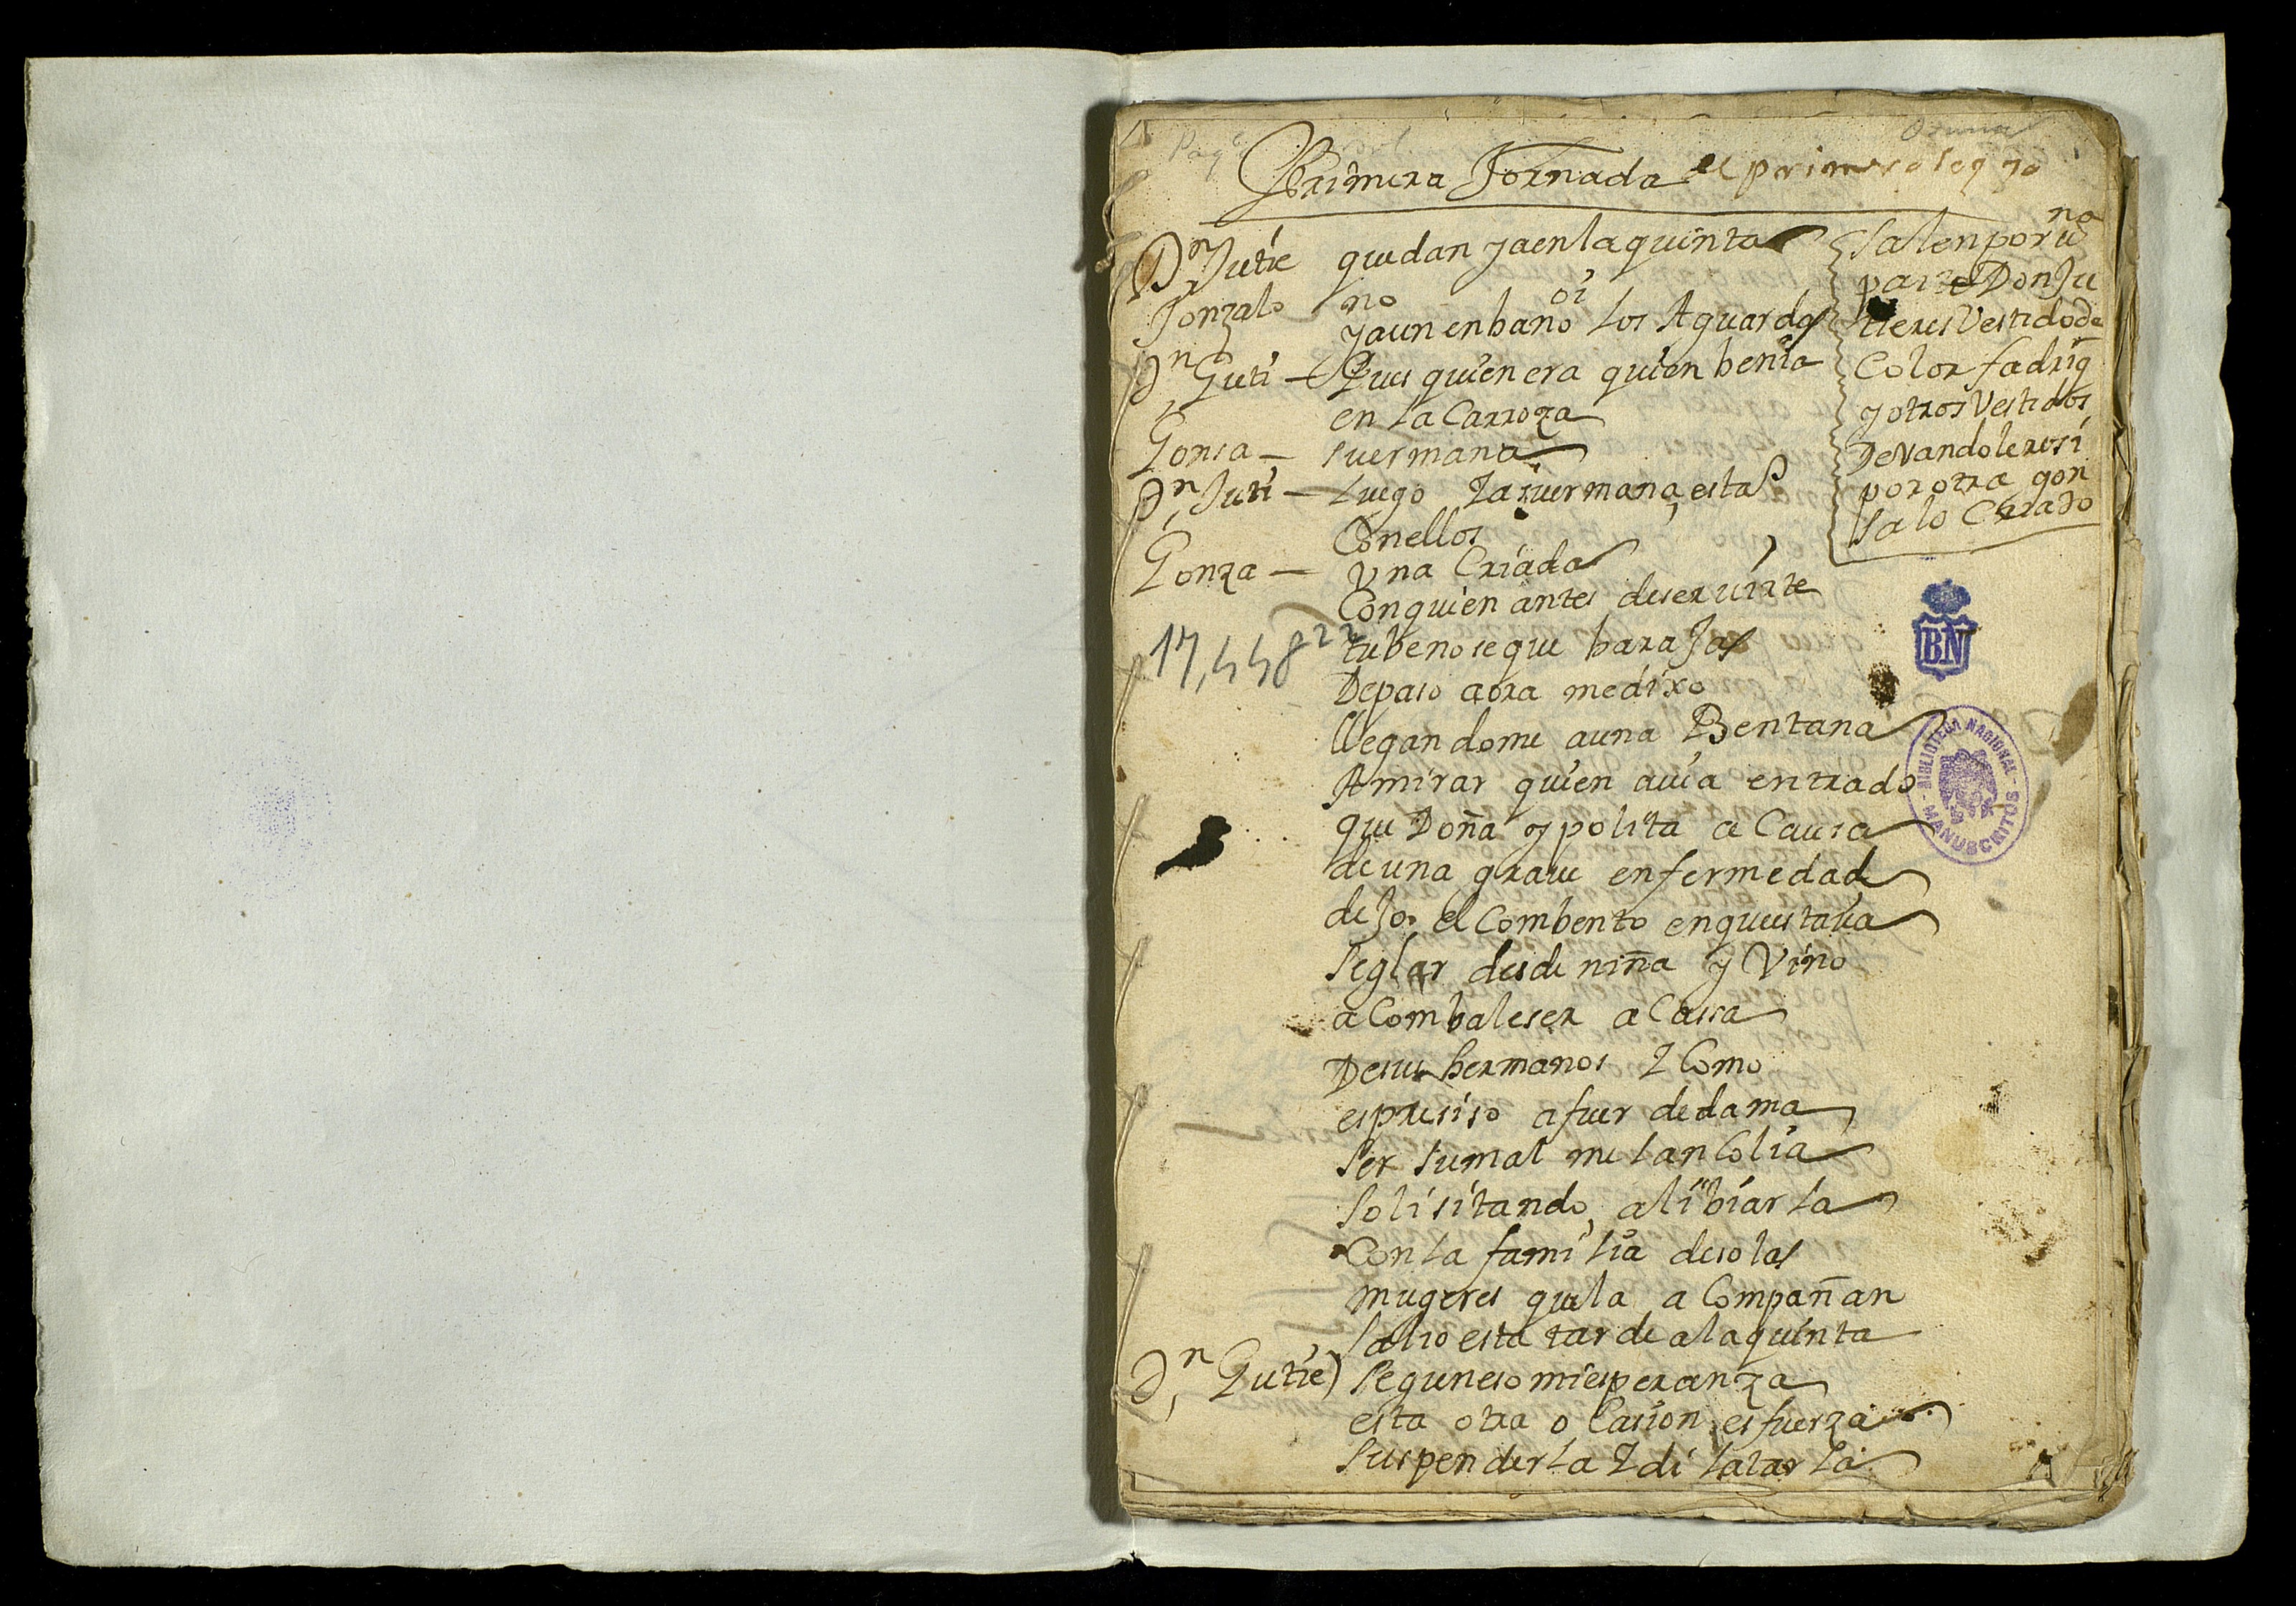 Osuna
Primera Jornada el primero soy yo
Dn Gutie quedan ya en la quinta
Salen por uno
parte Don Gu
tieres Vestido de
Color fadriq
y otros Vestidos
De Vandoleros i
por otra gon
salo Criado
Gonzalo no
y aun en bano oi los Aguardas
Dn Guti — Pues quien era quien benia
en la Carroza
Gonsa — su ermana
Dn Guti — luego la suermana esta
Con ellos
Gonza — Vna Criada
Con quien antes de servirte
tube no se que barajas
De paso aora me dixo
llegandome a una Bentana
A mirar quien auia entrado
que Doña ypolita a Causa
de una graue enfermedad
dejo el Combento en que estaua
seglar desde niña y Vino
a Combaleser a Cassa
De sus hermanos I Como
es presiso a fuer de dama
ser su mal melanColia
solisitando alibiarla
Con la familia de solas
mugeres que la aCompañan
salio esta tarde a la quinta
Dn Gutie) segun eso mi esperanza
esta otra oCasion es fuerza
suspenderla I dilatarla
17,448 22
BN
BIBLIOTECA NACIONAL
MANUSCRITOS